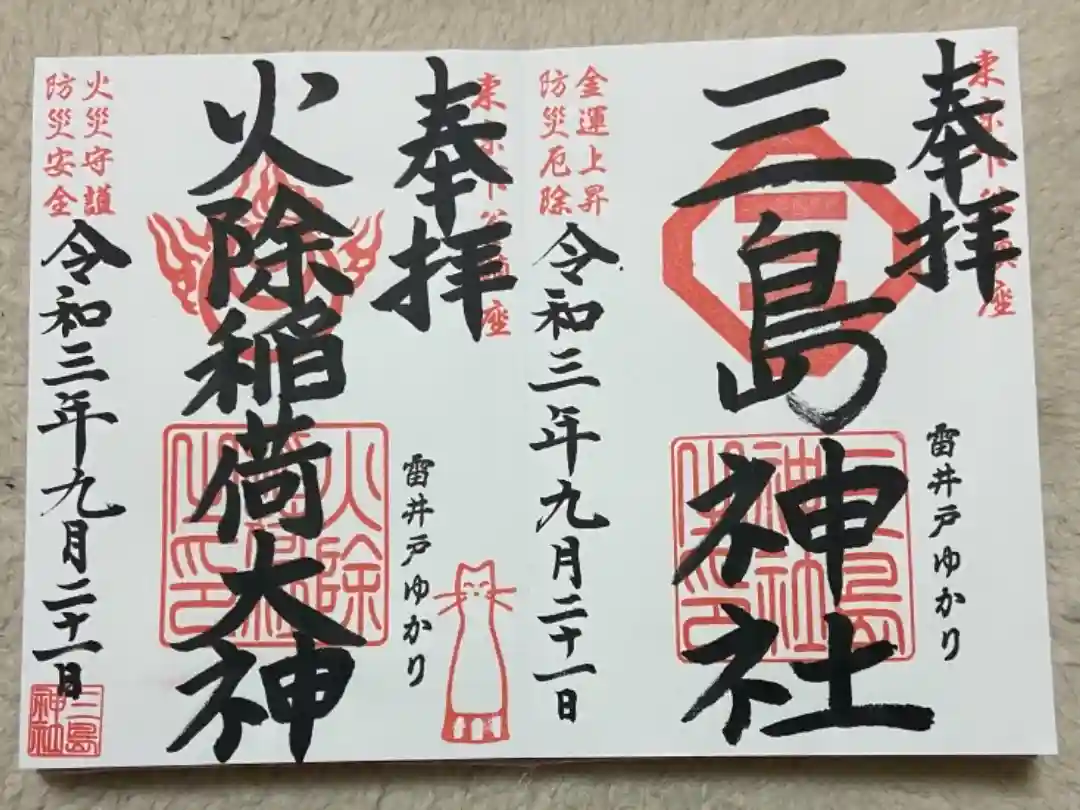 東京下谷
座
奉拝
三島神社
雷井戸ゆかり
金運上昇
防災厄除
令和三年九月二十一日
東京下谷
座
奉拝
火除稲荷大神
雷井戸ゆかり
火除
火災守護
防災安全
令和三年九月二十一日
三島
神社